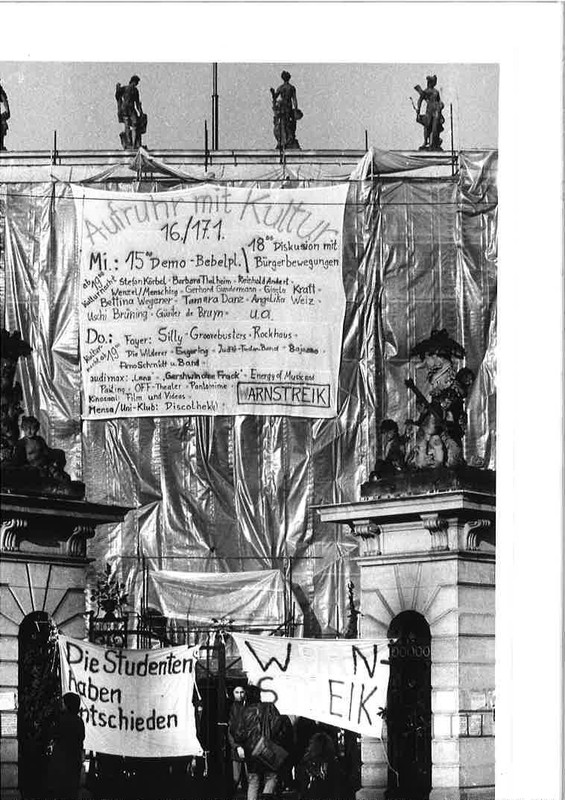 Aufruhr mit Kultur
16./17.1.
Mi.: 15⁰⁰ Demo-Bebelpl.\ 18⁰⁰ Diskusion mit
Bürgerbewegungen
ab 19⁰⁰ Kulturnacht
Stefan Körbel - Barbara Thalheim - Reinhold Andert -
Wenzel/Mensching - Gerhard Gundermann - Gisela Kraft -
Bettina Wegner - Tamara Danz - Angelika Weiz -
Uschi Brüning - Günter de Bruyn - u.a.
Do.: Foyer: Silly - Groovebusters - Rockhaus -
ab 19⁰⁰
Die Wilderer - Engerling - Bajazzo -
Arno Schmidt u. Band -
audimax: "Lana" - "Gershwin ohne Frack" - Energy of Music and
OFF-Theater - Pantomime
Kinosaal: Film und Videos -
Mensa/Uni-Klub: Discothek!
WARNSTREIK
Die Studenten
haben
entschieden
W N-
S EIK